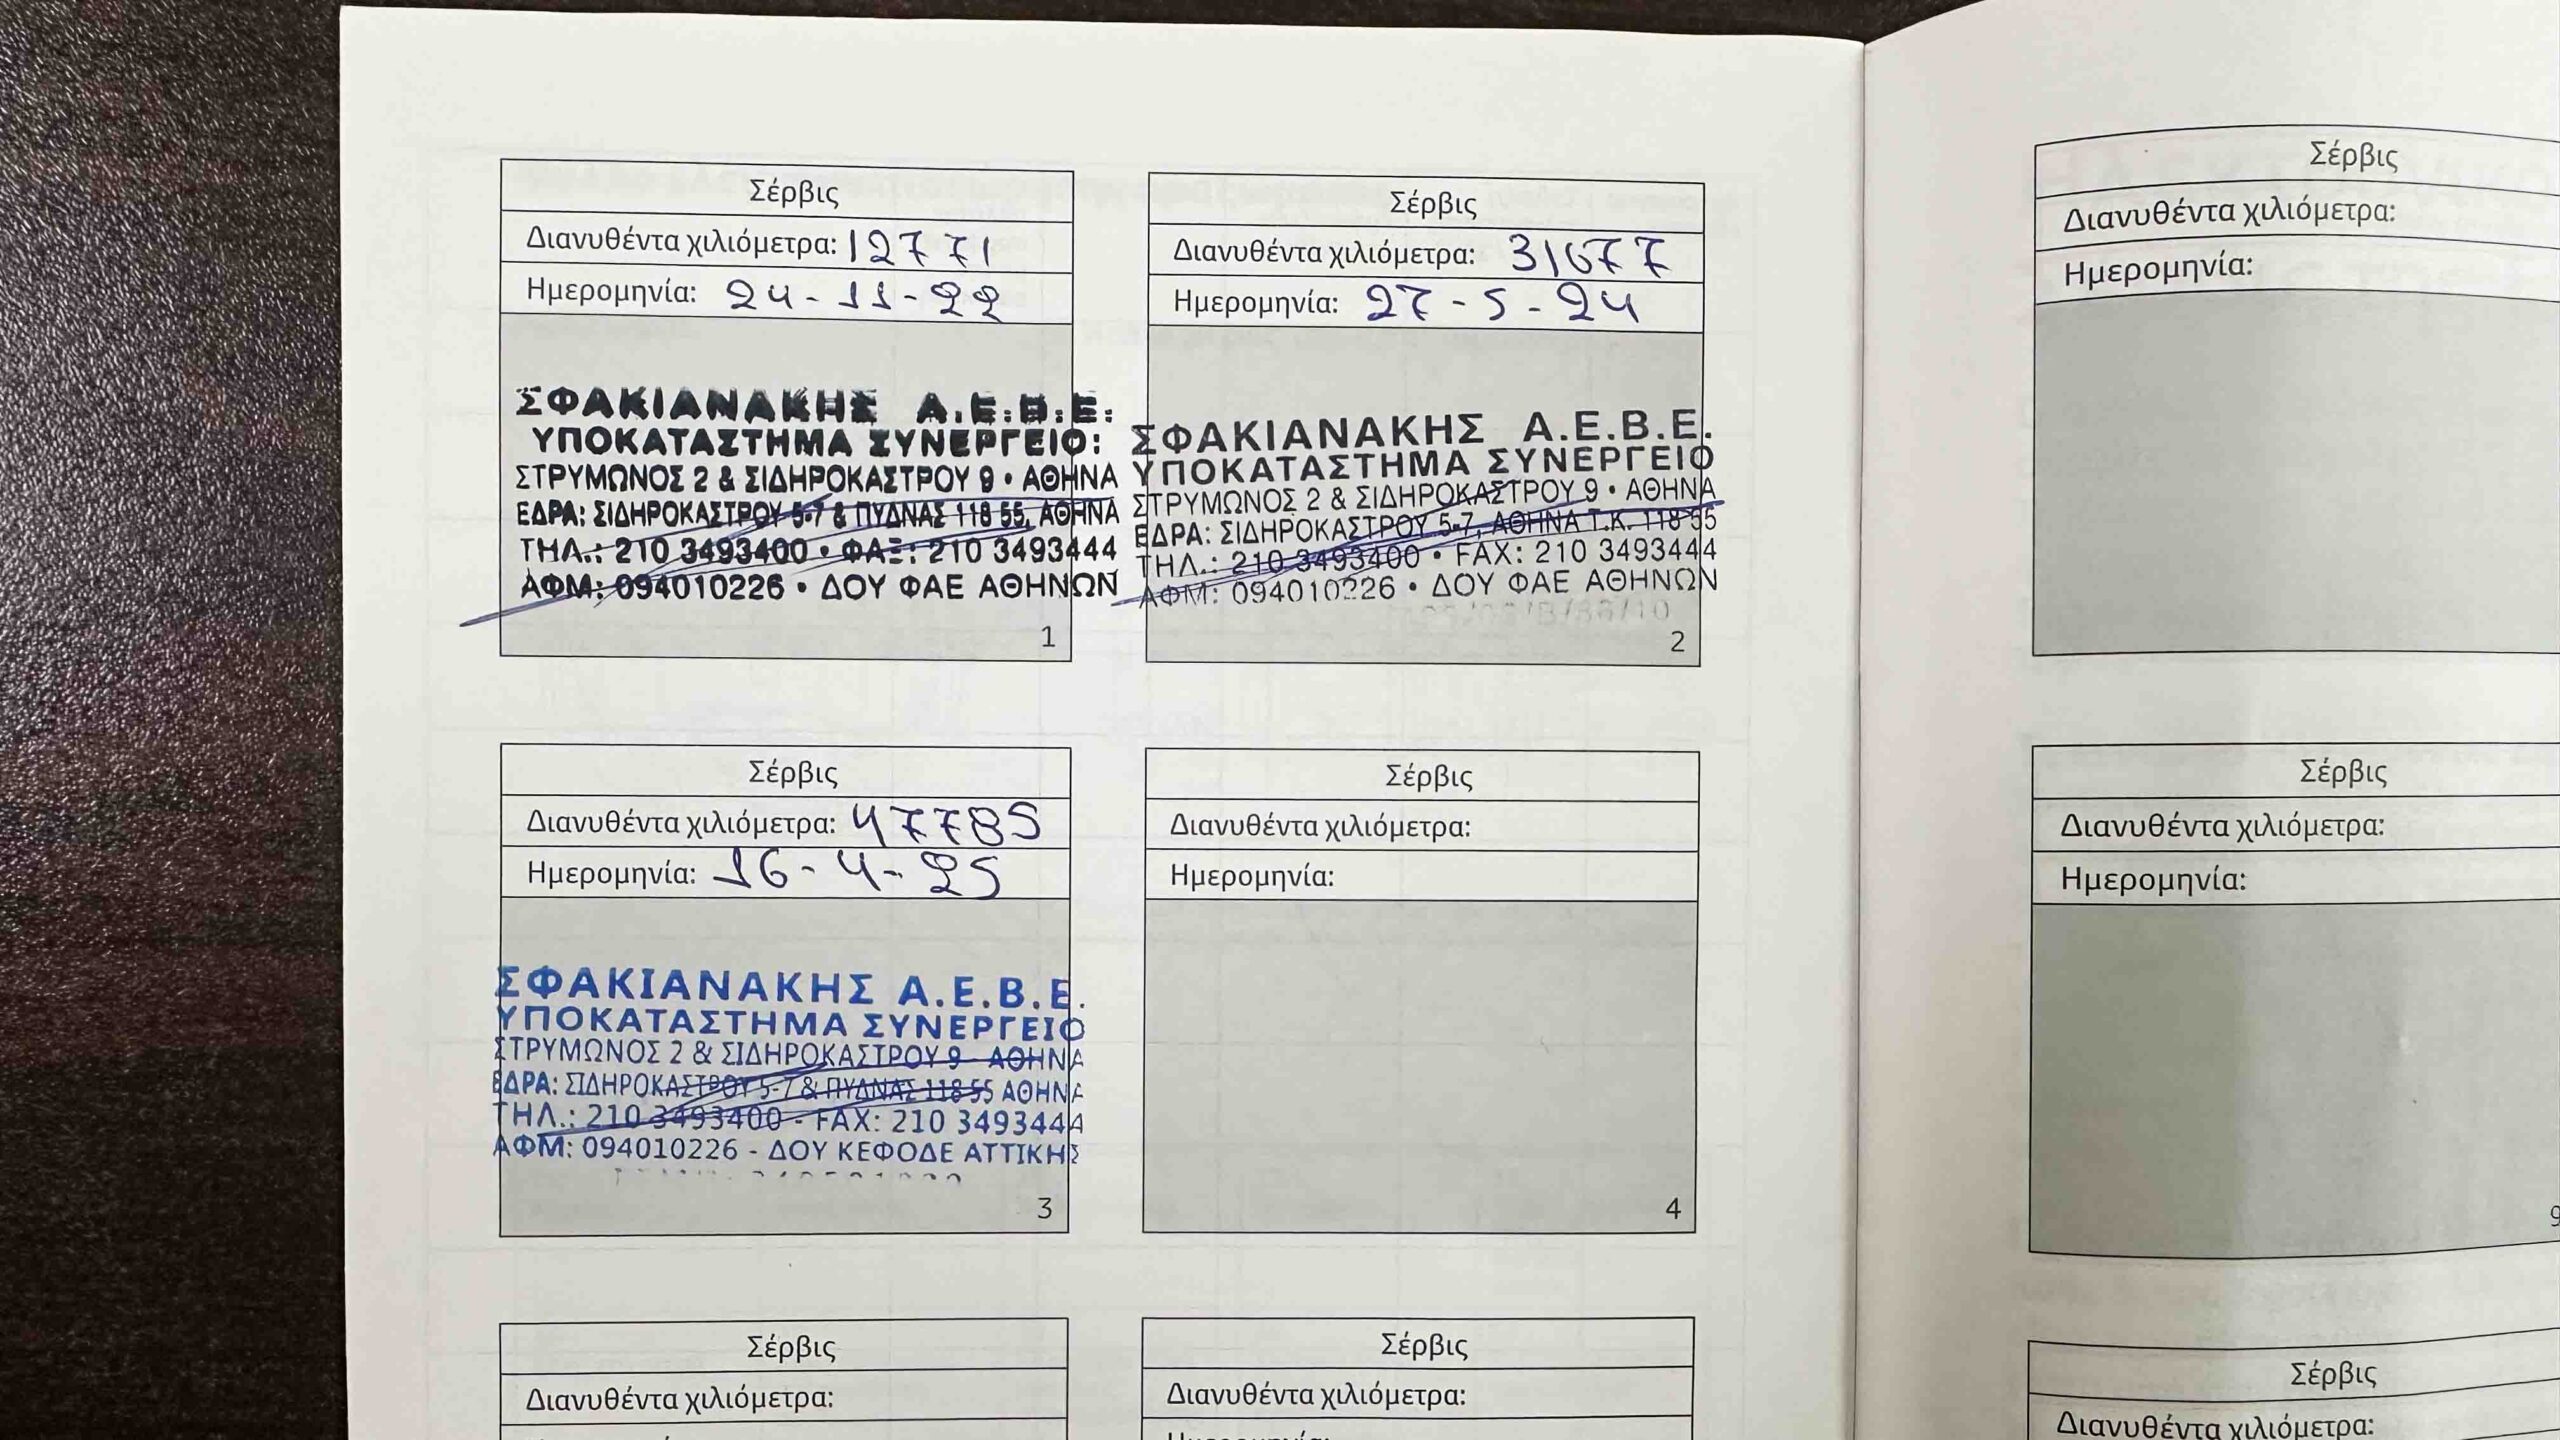 Σέρβις
Διανυθέντα χιλιόμετρα: 12771
Ημερομηνία: 24-11-22
ΣΦΑΚΙΑΝΑΚΗΣ Α.Ε.Β.Ε.
ΥΠΟΚΑΤΑΣΤΗΜΑ ΣΥΝΕΡΓΕΙΟ:
ΣΤΡΥΜΩΝΟΣ 2 & ΣΙΔΗΡΟΚΑΣΤΡΟΥ 9 • ΑΘΗΝΑ
ΕΔΡΑ: ΣΙΔΗΡΟΚΑΣΤΡΟΥ 5-7 & ΠΥΔΝΑΣ 118 55, ΑΘΗΝΑ
ΤΗΛ.: 210 3493400 • ΦΑΞ: 210 3493444
ΑΦΜ: 094010226 • ΔΟΥ ΦΑΕ ΑΘΗΝΩΝ
1
Σέρβις
Διανυθέντα χιλιόμετρα: 31677
Ημερομηνία: 27-5-24
ΣΦΑΚΙΑΝΑΚΗΣ Α.Ε.Β.Ε.
ΥΠΟΚΑΤΑΣΤΗΜΑ ΣΥΝΕΡΓΕΙΟ
ΣΤΡΥΜΩΝΟΣ 2 & ΣΙΔΗΡΟΚΑΣΤΡΟΥ 9 • ΑΘΗΝΑ
ΕΔΡΑ: ΣΙΔΗΡΟΚΑΣΤΡΟΥ 5-7, ΑΘΗΝΑ Τ.Κ. 118 55
ΤΗΛ.: 210 3493400 • FAX: 210 3493444
ΑΦΜ: 094010226 • ΔΟΥ ΦΑΕ ΑΘΗΝΩΝ
2
Σέρβις
Διανυθέντα χιλιόμετρα: 47785
Ημερομηνία: 16-4-25
ΣΦΑΚΙΑΝΑΚΗΣ Α.Ε.Β.Ε.
ΥΠΟΚΑΤΑΣΤΗΜΑ ΣΥΝΕΡΓΕΙΟ
ΣΤΡΥΜΩΝΟΣ 2 & ΣΙΔΗΡΟΚΑΣΤΡΟΥ 9 - ΑΘΗΝΑ
ΕΔΡΑ: ΣΙΔΗΡΟΚΑΣΤΡΟΥ 5-7 & ΠΥΔΝΑΣ 118 55 ΑΘΗΝΑ
ΤΗΛ.: 210 3493400 - FAX: 210 3493444
ΑΦΜ: 094010226 - ΔΟΥ ΚΕΦΟΔΕ ΑΤΤΙΚΗΣ
3
Σέρβις
Διανυθέντα χιλιόμετρα:
Ημερομηνία:
4
Σέρβις
Διανυθέντα χιλιόμετρα:
Σέρβις
Διανυθέντα χιλιόμετρα:
Σέρβις
Διανυθέντα χιλιόμετρα:
Ημερομηνία:
Σέρβις
Διανυθέντα χιλιόμετρα:
Ημερομηνία:
9
Σέρβις
Διανυθέντα χιλιόμετρα: